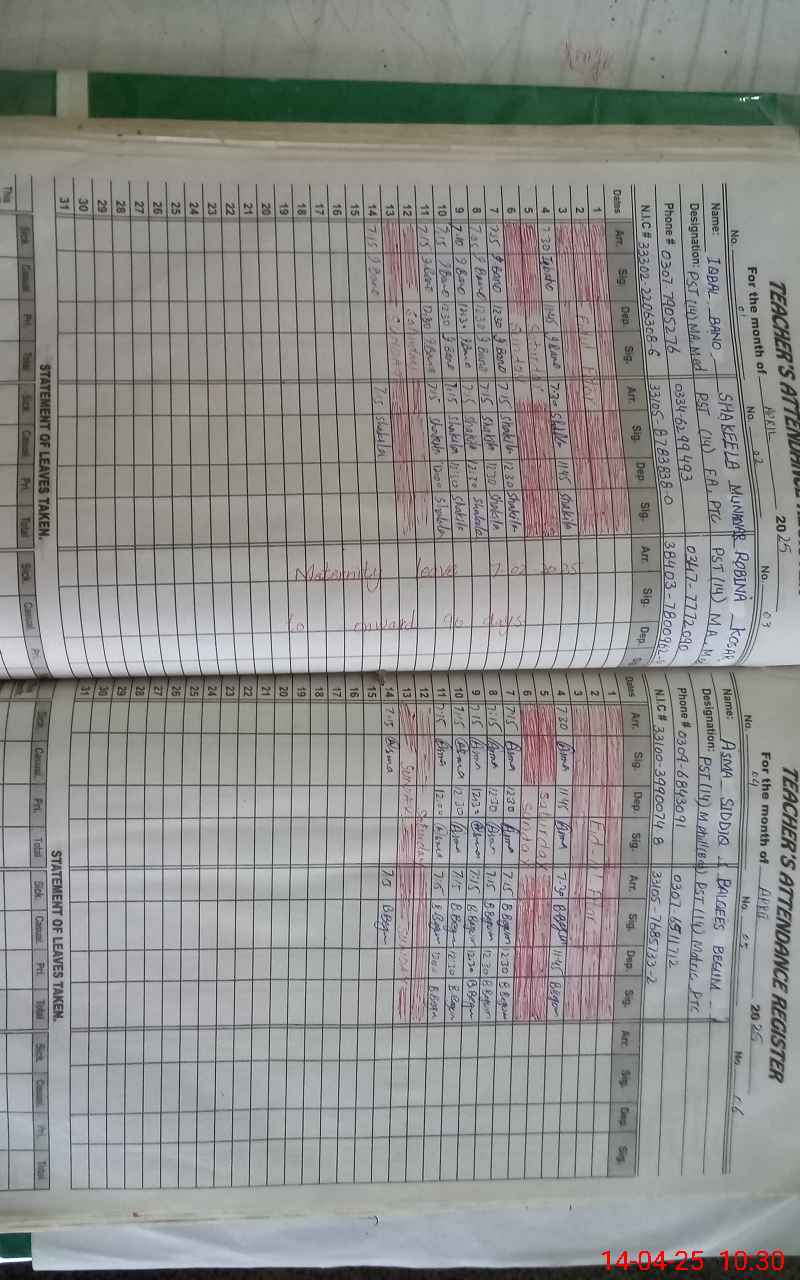 TEACHER'S ATTENDANCE
For the month of APRIL 2025
No. 01 No. 02 No. 03
Name: IQBAL BANO SHAKEELA MUNAWAR ROBINA KOSAR
Designation: PST (14) MA. Med PST (14) FA, PTC PST (14) MA, M
Phone # 0307-7905276 0334-6299493 0347-7772090
N.I.C # 33302-2206308-6 33105-8783838-0 38403-7800962-
Dates Arr. Sig. Dep. Sig. Arr. Sig. Dep. Sig. Arr. Sig. Dep.
1
2
3
4 7:30 11:45 7:30 Shakila 11:45 Shakila
5 Saturday
6 Sunday
7 7:15 9 Bano 12:30 9 Bano 7:15 Shakila 12:30 Shakila
8 7:15 9 Bano 12:30 9 Bano 7:15 Shakila 12:30 Shakila
9 7:15 9 Bano 12:30 9 Bano 7:15 Shakila 12:30 Shakila
10 7:15 9 Bano 12:30 9 Bano 7:15 Shakila 12:30 Shakila
11 7:15 9 Bano 12:00 9 Bano 7:15 Shakila 12:00 Shakila
12 Saturday
13 SUNDAY
14 7:15 9 Bano 7:15 Shakila
15
16
17
18
19
20
21
22
23
24
25
26
27
28
29
30
31
Maternity leave 7-02-2025
to onward 90 days
STATEMENT OF LEAVES TAKEN.
Sick Casual Pri. Total Sick Casual Pri. Total Sick Casual Pri.
This
TEACHER'S ATTENDANCE REGISTER
For the month of APRIL 2025
No. 04 No. 05 No. 06
Name: ASMA SIDDIQ BALQEES BEGUM
Designation: PST (14) M.phill PST (14) Matric PTC
Phone # 0304-6843091 0307-6511712
N.I.C # 33100-3990074-8 33105-7685733-2
Dates Arr. Sig. Dep. Sig. Arr. Sig. Dep. Sig. Arr. Sig. Dep. Sig.
1
2
3
4 7:30 Asma 11:45 Asma 7:30 B Begum 11:45 B Begum
5 Saturday
6 Sunday
7 7:15 Asma 12:30 Asma 7:15 B Begum 12:30 B Begum
8 7:15 Asma 12:30 Asma 7:15 B Begum 12:30 B Begum
9 7:15 Asma 12:30 Asma 7:15 B Begum 12:30 B Begum
10 7:15 Asma 12:30 Asma 7:15 B Begum 12:30 B Begum
11 7:15 Asma 12:00 Asma 7:15 B Begum 12:00 B Begum
12 Saturday
13 SUNDAY SUNDAY
14 7:15 Asma 7:15 B Begum
15
16
17
18
19
20
21
22
23
24
25
26
27
28
29
30
31
STATEMENT OF LEAVES TAKEN.
Sick Casual Pri. Total Sick Casual Pri. Total Sick Casual Pri. Total
14-04-25 10:30